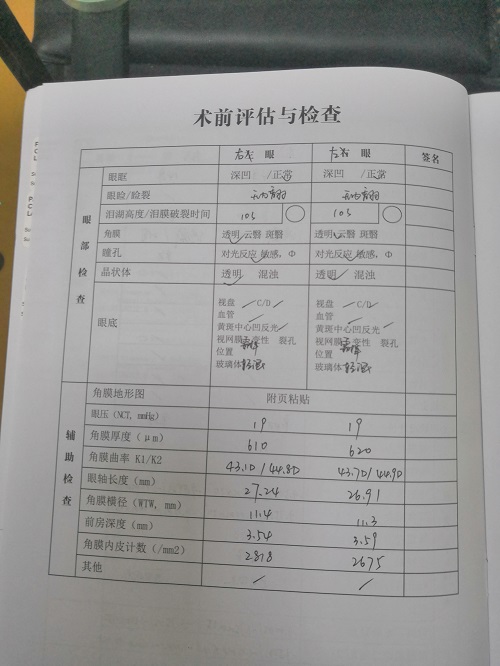 术前评估与检查
眼 眼 签名
眼部检查
眼眶 深凹 /正常 深凹 /正常
眼睑/睑裂 无内翻 无内翻
泪湖高度/泪膜破裂时间 10s 10s
角膜 透明 云翳 斑翳 透明 云翳 斑翳
瞳孔 对光反应 敏感，Φ 对光反应 敏感，Φ
晶状体 透明 混浊 透明 混浊
眼底
视盘 C/D 视盘 C/D
血管 血管
黄斑中心凹反光 黄斑中心凹反光
视网膜 变性 裂孔 视网膜 变性 裂孔
位置 位置
玻璃体 玻璃体
辅助检查
角膜地形图 附页粘贴
眼压（NCT, mmHg） 19 19
角膜厚度（μm） 610 620
角膜曲率 K1/K2 43.1D/44.8D 43.7D/44.9D
眼轴长度（mm） 27.24 26.91
角膜横径（WTW, mm） 11.4 11.3
前房深度（mm） 3.54 3.59
角膜内皮计数（/mm2） 2878 2675
其他 / /